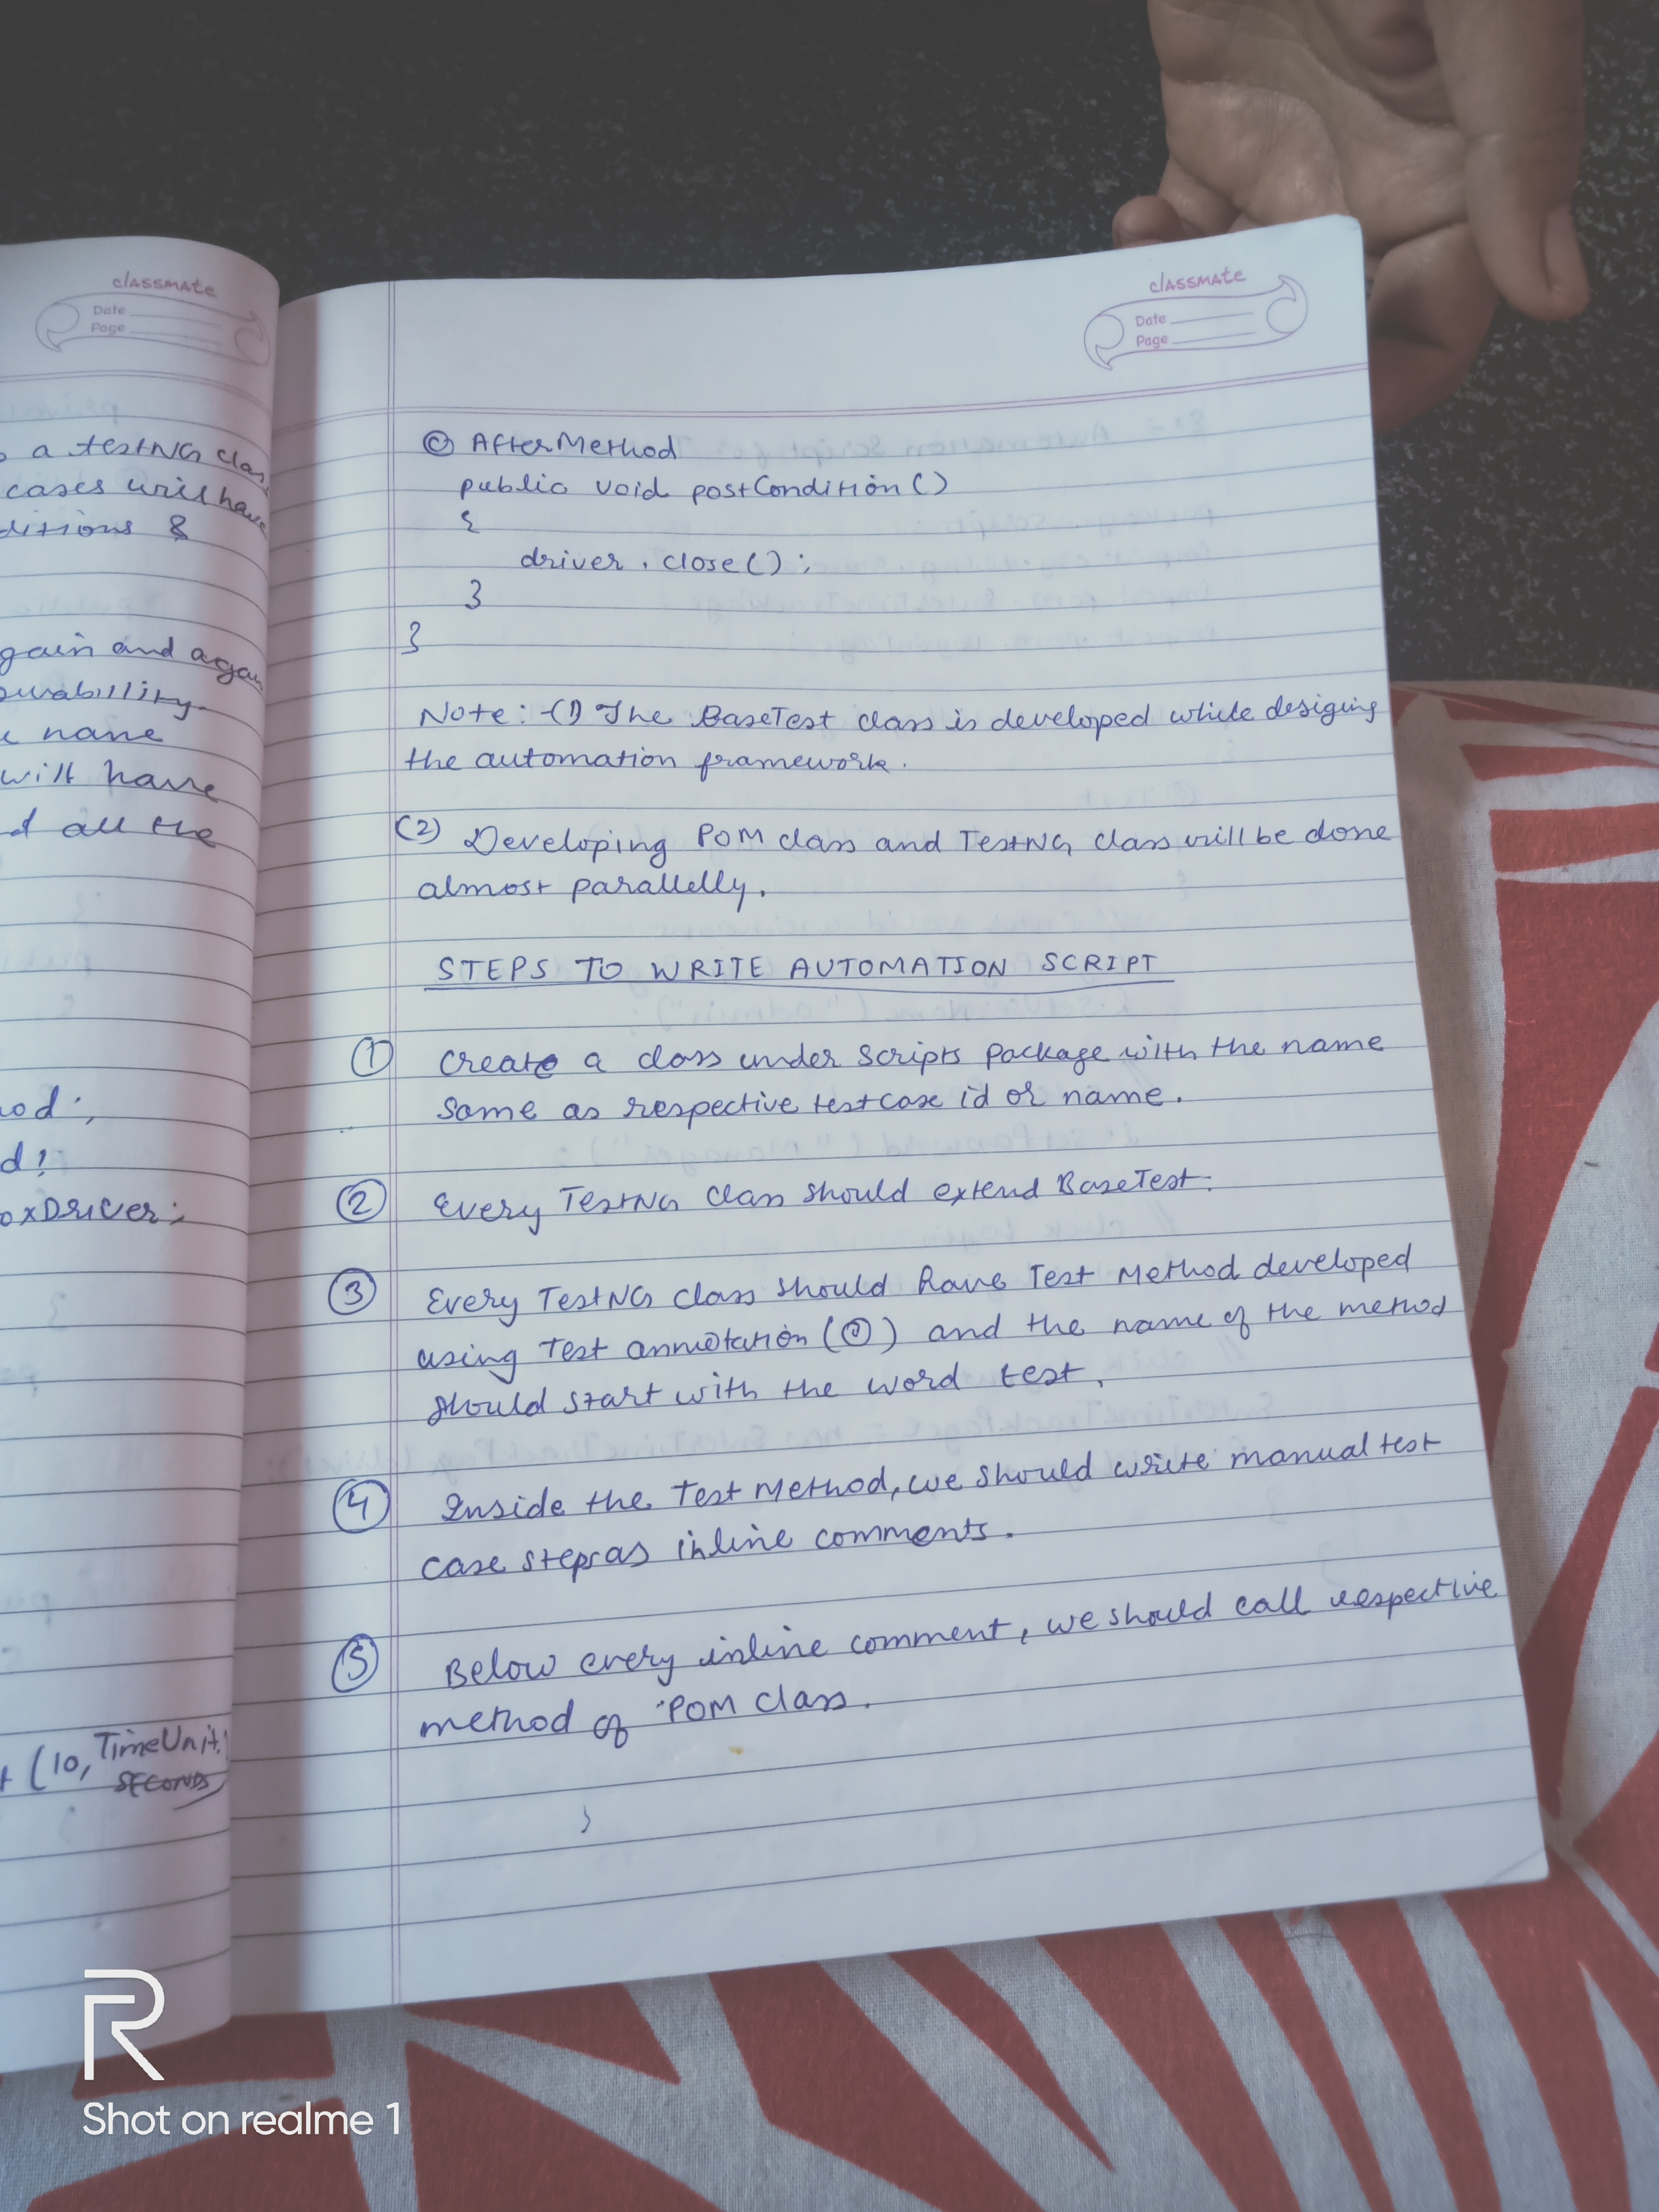 classmate
Date
Page
a testNG clas
cases will have
ditions &
gain and again
name
will have
all the
d!
oxDriver;
(10, TimeUnit.
SECONDS
classmate
Date
Page
@ AfterMethod
public void postCondition()
{
driver.close();
}
}
Note:-(1) The BaseTest class is developed while desiging
the automation framework.
(2) Developing POM class and TestNG class will be done
almost parallelly.
STEPS TO WRITE AUTOMATION SCRIPT
① Create a class under scripts package with the name
same as respective testcase id or name.
② Every TestNG class should extend BaseTest.
③ Every TestNG class should have Test Method developed
using Test annotation (@) and the name of the method
should start with the word test.
④ Inside the Test Method, we should write manual test
case steps as inline comments.
⑤ Below every inline comment, we should call respective
method of POM class.
R
Shot on realme 1